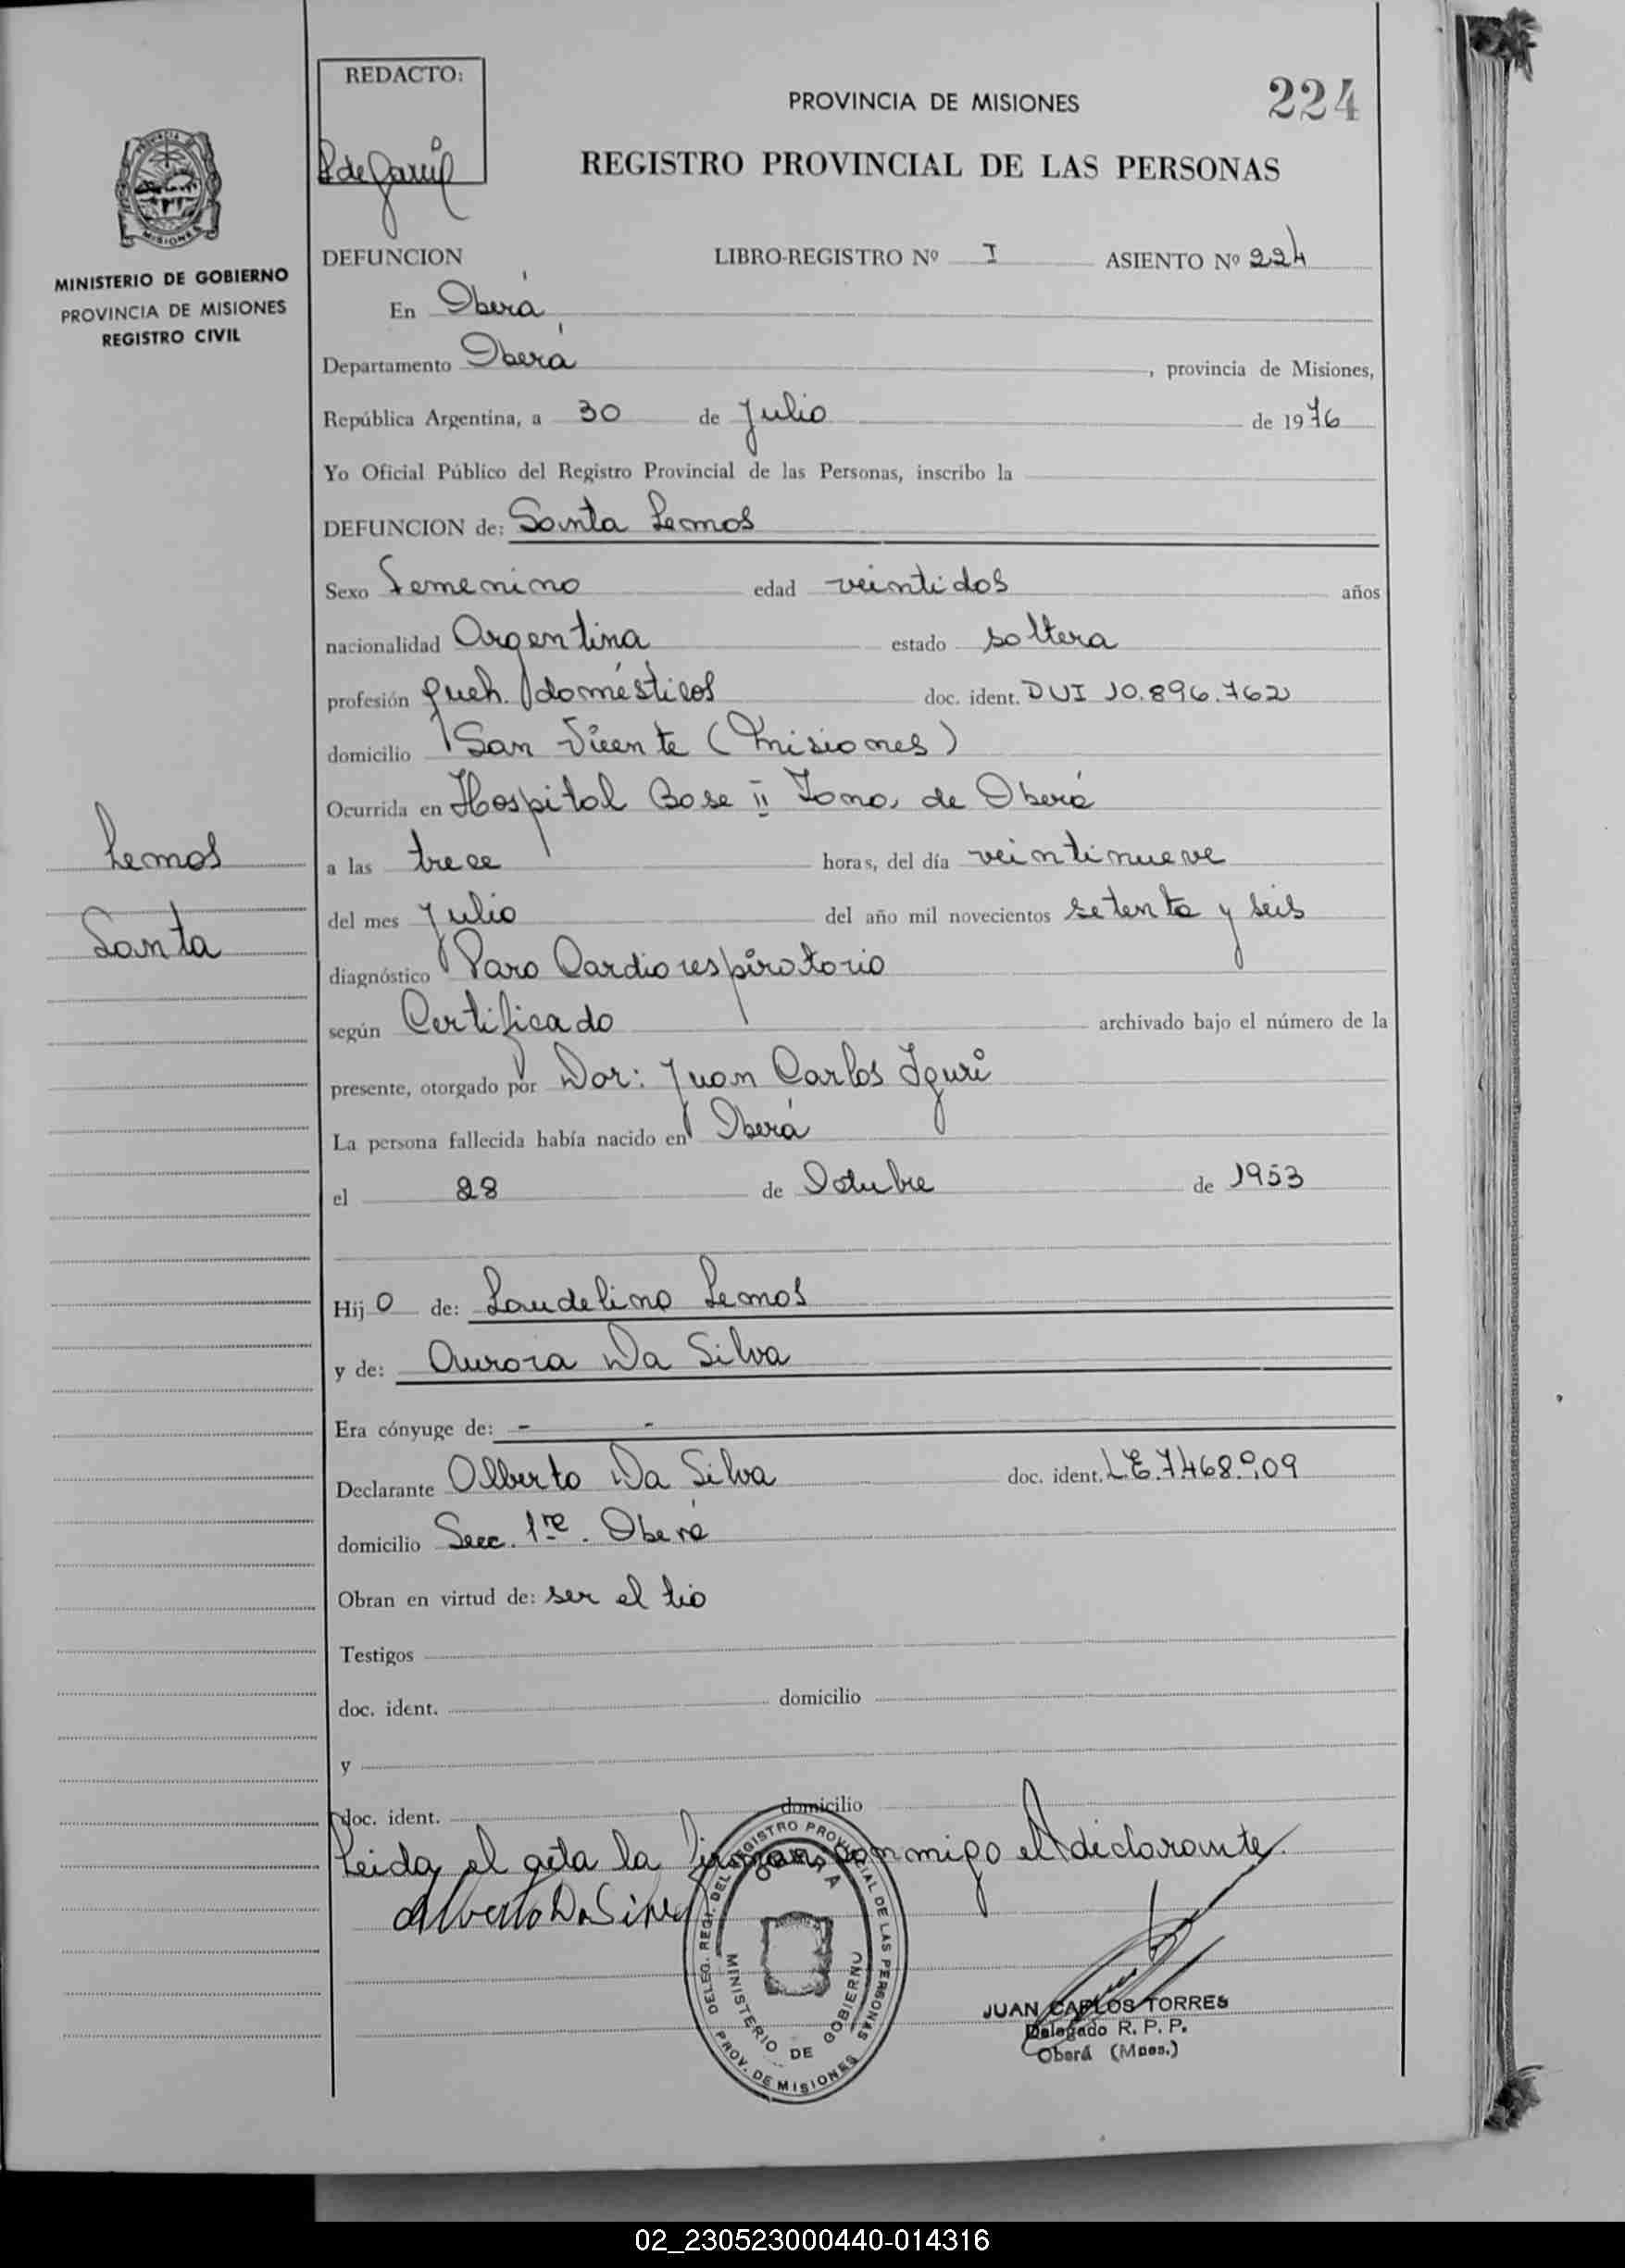 REDACTO:
PROVINCIA DE MISIONES
224
REGISTRO PROVINCIAL DE LAS PERSONAS
MISIONES
MINISTERIO DE GOBIERNO
PROVINCIA DE MISIONES
REGISTRO CIVIL
DEFUNCION LIBRO-REGISTRO Nº I ASIENTO Nº 224
En Oberá
Departamento Oberá, provincia de Misiones,
República Argentina, a 30 de Julio de 1976
Yo Oficial Público del Registro Provincial de las Personas, inscribo la
DEFUNCION de: Santa Lemos
Sexo Femenino edad veintidos años
nacionalidad Argentina estado soltera
profesión queh. domésticos doc. ident. DUI 10.896.762
domicilio San Vicente (Misiones)
Ocurrida en Hospital Base II Zona, de Oberá
a las trece horas, del día veintinueve
del mes Julio del año mil novecientos setenta y seis
diagnóstico Paro Cardiorespiratorio
según Certificado archivado bajo el número de la
presente, otorgado por Dor: Juan Carlos Iguri
La persona fallecida había nacido en Oberá
el 28 de Octubre de 1953
Lemos
Santa
Hij o de: Laudelino Lemos
y de: Aurora Da Silva
Era cónyuge de: - -
Declarante Alberto Da Silva doc. ident. LE.7.468.909
domicilio Secc. 1re. Oberá
Obran en virtud de: ser el tio
Testigos
doc. ident. domicilio
y
doc. ident. domicilio
Leida el acta la firman conmigo el declarante.
Alberto Da Silva
DELEG. REGI. DEL REGISTRO PROVINCIAL DE LAS PERSONAS
OBERA
MINISTERIO DE GOBIERNO
PROV. DE MISIONES
JUAN CARLOS TORRES
Delegado R. P. P.
Oberá (Mnes.)
02_230523000440-014316